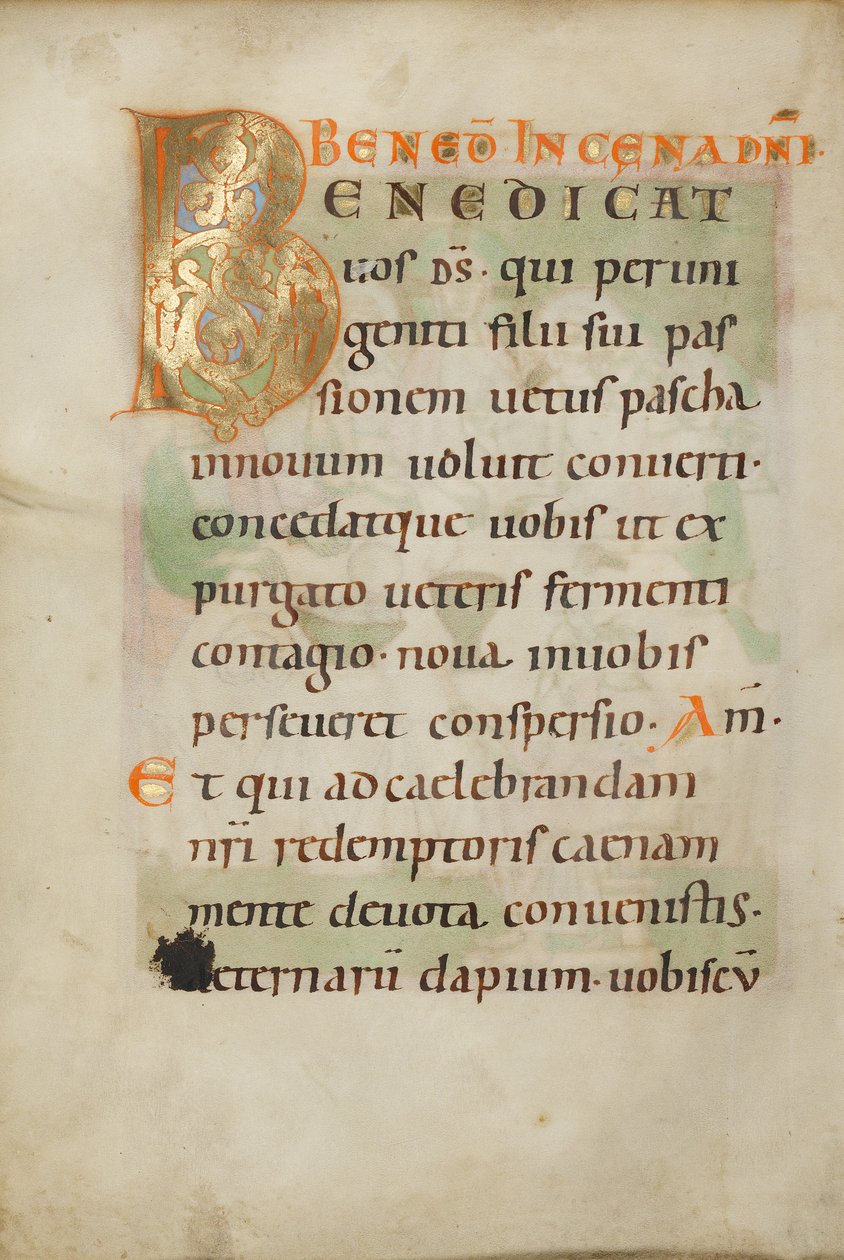 BENED̄ IN CENA DN̄I·
BENEDICAT
uos D̄S· qui per uni
geniti filii sui pas
sionem uetus pascha
innouum uoluit conuerti·
concedatque uobis ut ex
purgato ueteris fermenti
contagio· noua inuobis
perseueret conspersio· Am̄·
Et qui ad caelebrandam
nr̄i redemptoris caenam
mente deuota conuenistis·
aeternarū dapium· uobiscū